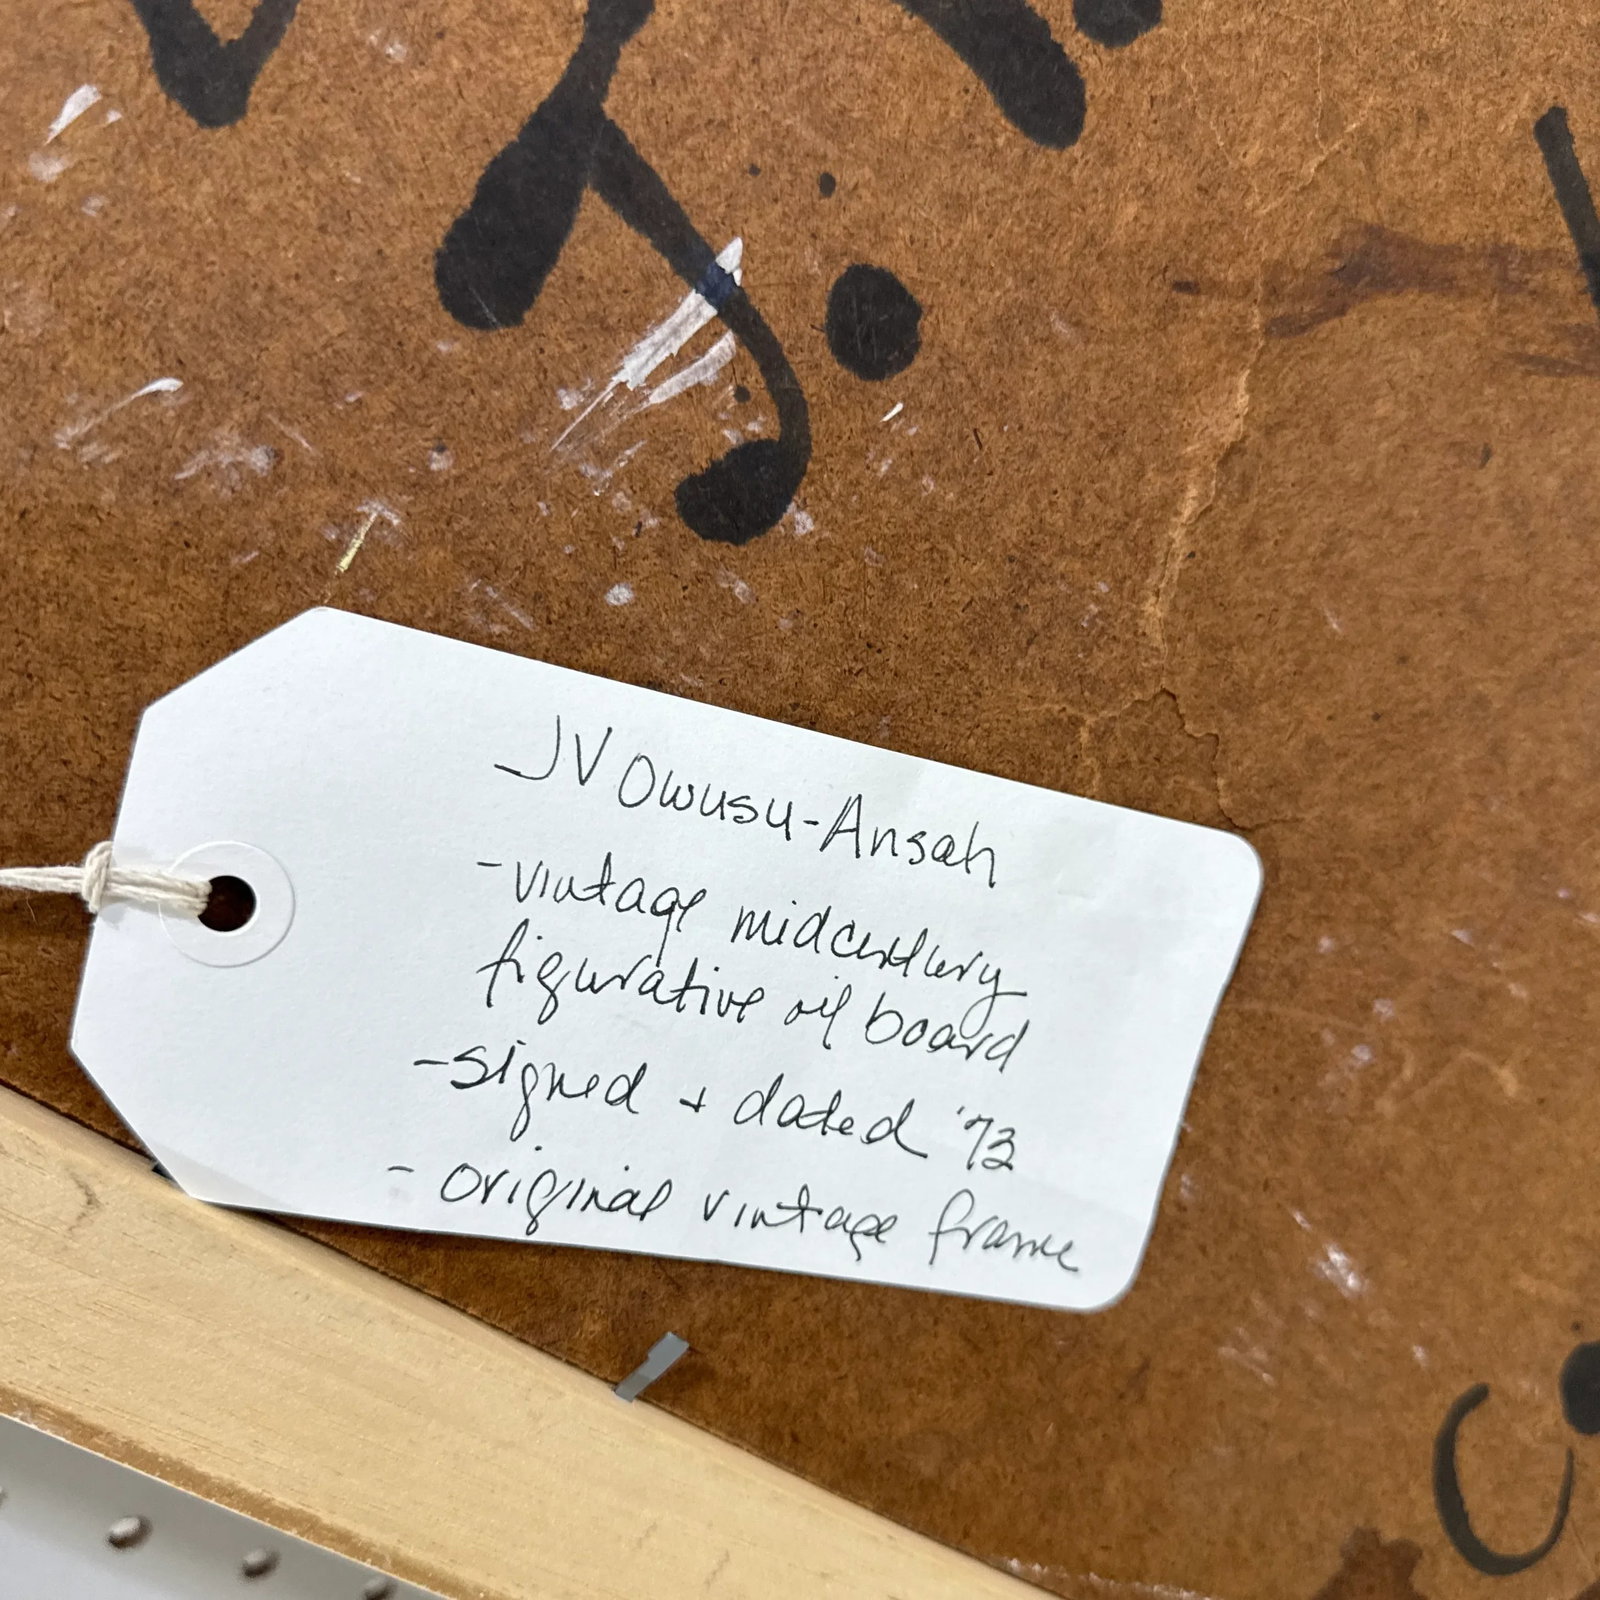 JV Owusu-Ansah
- vintage midcentury
figurative oil board
- signed + dated '73
- original vintage frame